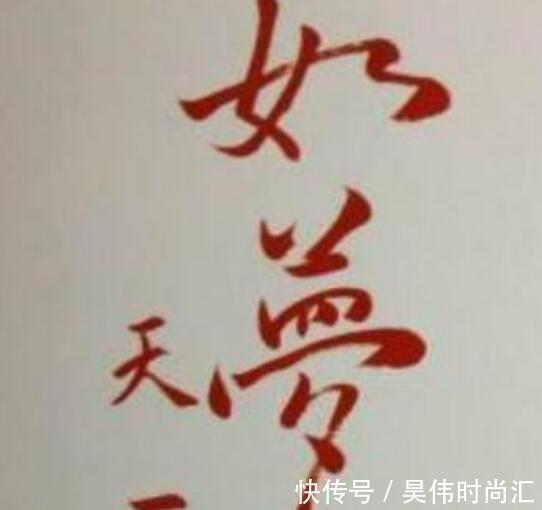 如夢
天
快传号 / 昊伟时尚汇